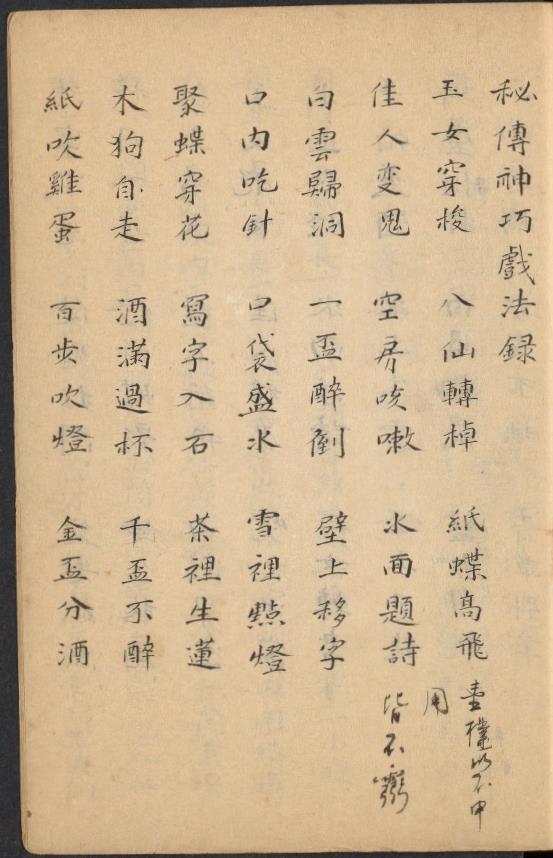 秘傳神巧戲法録
玉女穿梭 八仙轉棹 紙蝶高飛
佳人变鬼 空房咳嗽 水面題詩
白雲歸洞 一盃醉倒 壁上移字
口内吃針 口袋盛水 雪裡點燈
聚蝶穿花 寫字入石 茶裡生蓮
木狗自走 酒滿過杯 千盃不醉
紙吹雞蛋 百步吹燈 金盃分酒
用
皆不